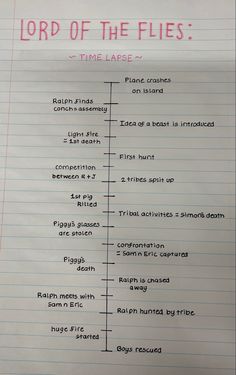 LORD OF THE FLIES:
~ TIME LAPSE ~
Plane crashes
on island
Ralph finds
conch = assembly
Idea of a beast is introduced
light fire
= 1st death
First hunt
competition
between R + J
2 tribes split up
1st pig
killed
Tribal activities = Simon's death
Piggy's glasses
are stolen
confrontation
= Sam n Eric captured
Piggy's
death
Ralph is chased
away
Ralph meets with
Sam n Eric
Ralph hunted by tribe
huge fire
started
Boys rescued